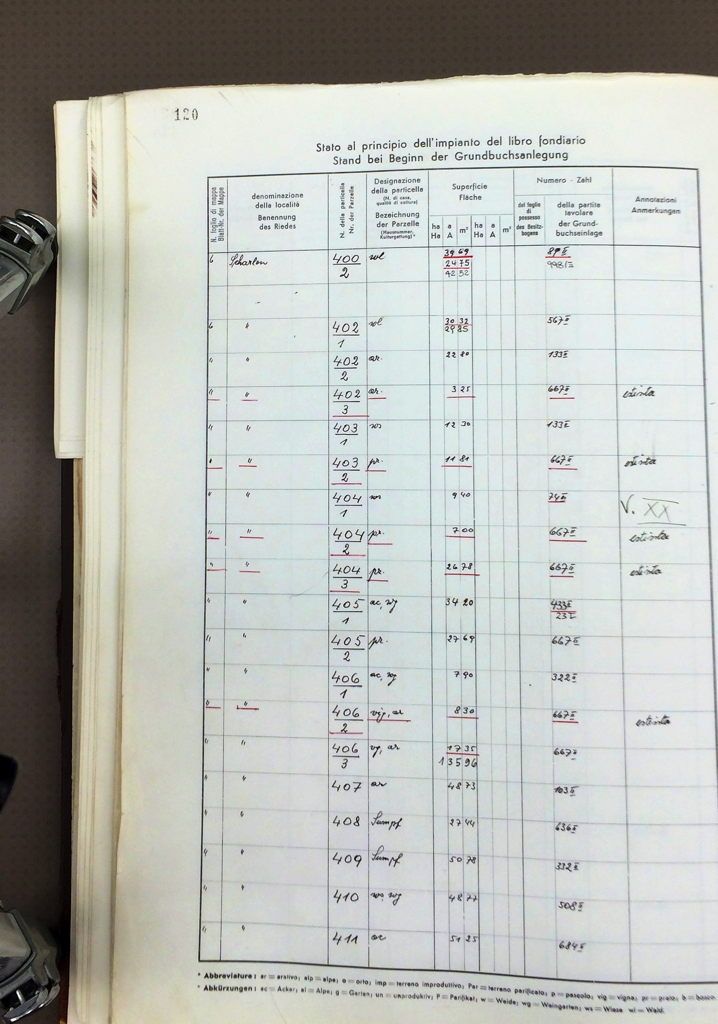 120
Stato al principio dell'impianto del libro fondiario
Stand bei Beginn der Grundbuchsanlegung
N. foglio di mappa
Blatt-Nr. der Mappe
denominazione della località
Benennung des Riedes
N. della particella
Nr. der Parzelle
Designazione della particella (N. di casa, qualità di coltura)
Bezeichnung der Parzelle (Hausnummer, Kulturgattung)*
Superficie
Fläche
ha Ha a A m² ha Ha a A m²
Numero - Zahl
del foglio di possesso
des Besitzbogens
della partita tavolare
der Grundbuchseinlage
Annotazioni
Anmerkungen
6 400/2 wl 39 69
24 75
42 52 998/II
6 " 402/1 wl 30 32 567 II
29 85
" " 402/2 ar. 22 80 133 II
" " 402/3 ar. 3 25 667 II estinta
" " 403/1 ws 12 30 133 II
" " 403/2 pr. 11 81 667 II estinta
" " 404/1 ws 9 40 74 II V. XX
" " 404/2 pr. 7 00 667 II estinta
" " 404/3 pr. 26 78 667 II estinta
" " 405/1 ac, wg 34 20 433 II
23 I
" " 405/2 pr. 27 69 667 II
" " 406/1 ac, wg 7 90 322 II
" " 406/2 vig, ar 8 30 667 II estinta
" " 406/3 vg, ar 17 35 667 II
135 96
" " 407 ar 48 73 103 II
" " 408 Sumpf 27 44 636 II
" " 409 Sumpf 50 78 332 II
" " 410 ws, wg 48 77 508 II
" " 411 ar 51 25 684 II
* Abbreviature: ar = arativo, alp = alpe, o = orto, imp = terreno improduttivo, Par = terreno parificato, p = pascolo, vig = vigna, pr = prato, b = bosco.
* Abkürzungen: ac = Acker, al = Alpe, g = Garten, un = unproduktiv, P = Parifikat, w = Weide, wg = Weingarten, ws = Wiese wl = Wald.